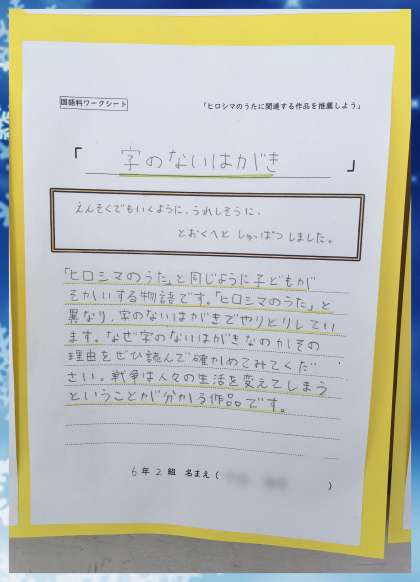 国語科ワークシート
「ヒロシマのうたに関連する作品を推薦しよう」
「字のないはがき」
えんそくでもいくように、うれしそうに、
とおくへと しゅっぱつしました。
「ヒロシマのうた」と同じように子どもが
そかいする物語です。「ヒロシマのうた」と
異なり、字のないはがきでやりとりしてい
ます。なぜ字のないはがきなのかその
理由をぜひ読んで確かめてみてくだ
さい。戦争は人々の生活を変えてしまう
ということが分かる作品です。
6年2組 名まえ( )